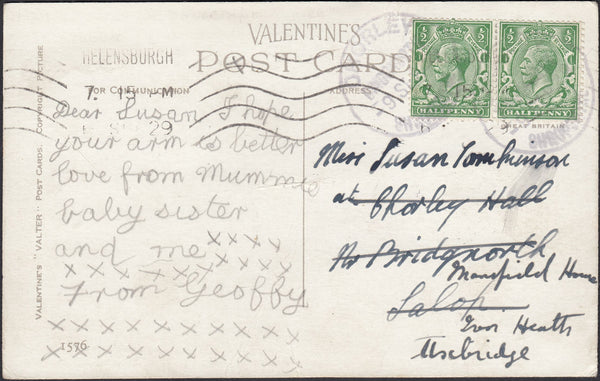 VALENTINES
POST CARD
HELENSBURGH
7. 15 M
29
FOR COMMUNICATION
ADDRESS
Dear Susan I hope
your arm is better
love from Mummie
baby sister
and me xxxx
xxxxxxxxx
From Geoffy
xxxxxxxxxx
xxxxxxxxxx
1576
VALENTINE'S "VALTER" POST CARDS. COPYRIGHT PICTURE
½ ½
HALFPENNY
½ ½
HALFPENNY
GREAT BRITAIN
Miss Susan Tomkinson
at Chorley Hall
Nr Bridgnorth
Mansfield House
Salop.
Iver Heath
Uxbridge